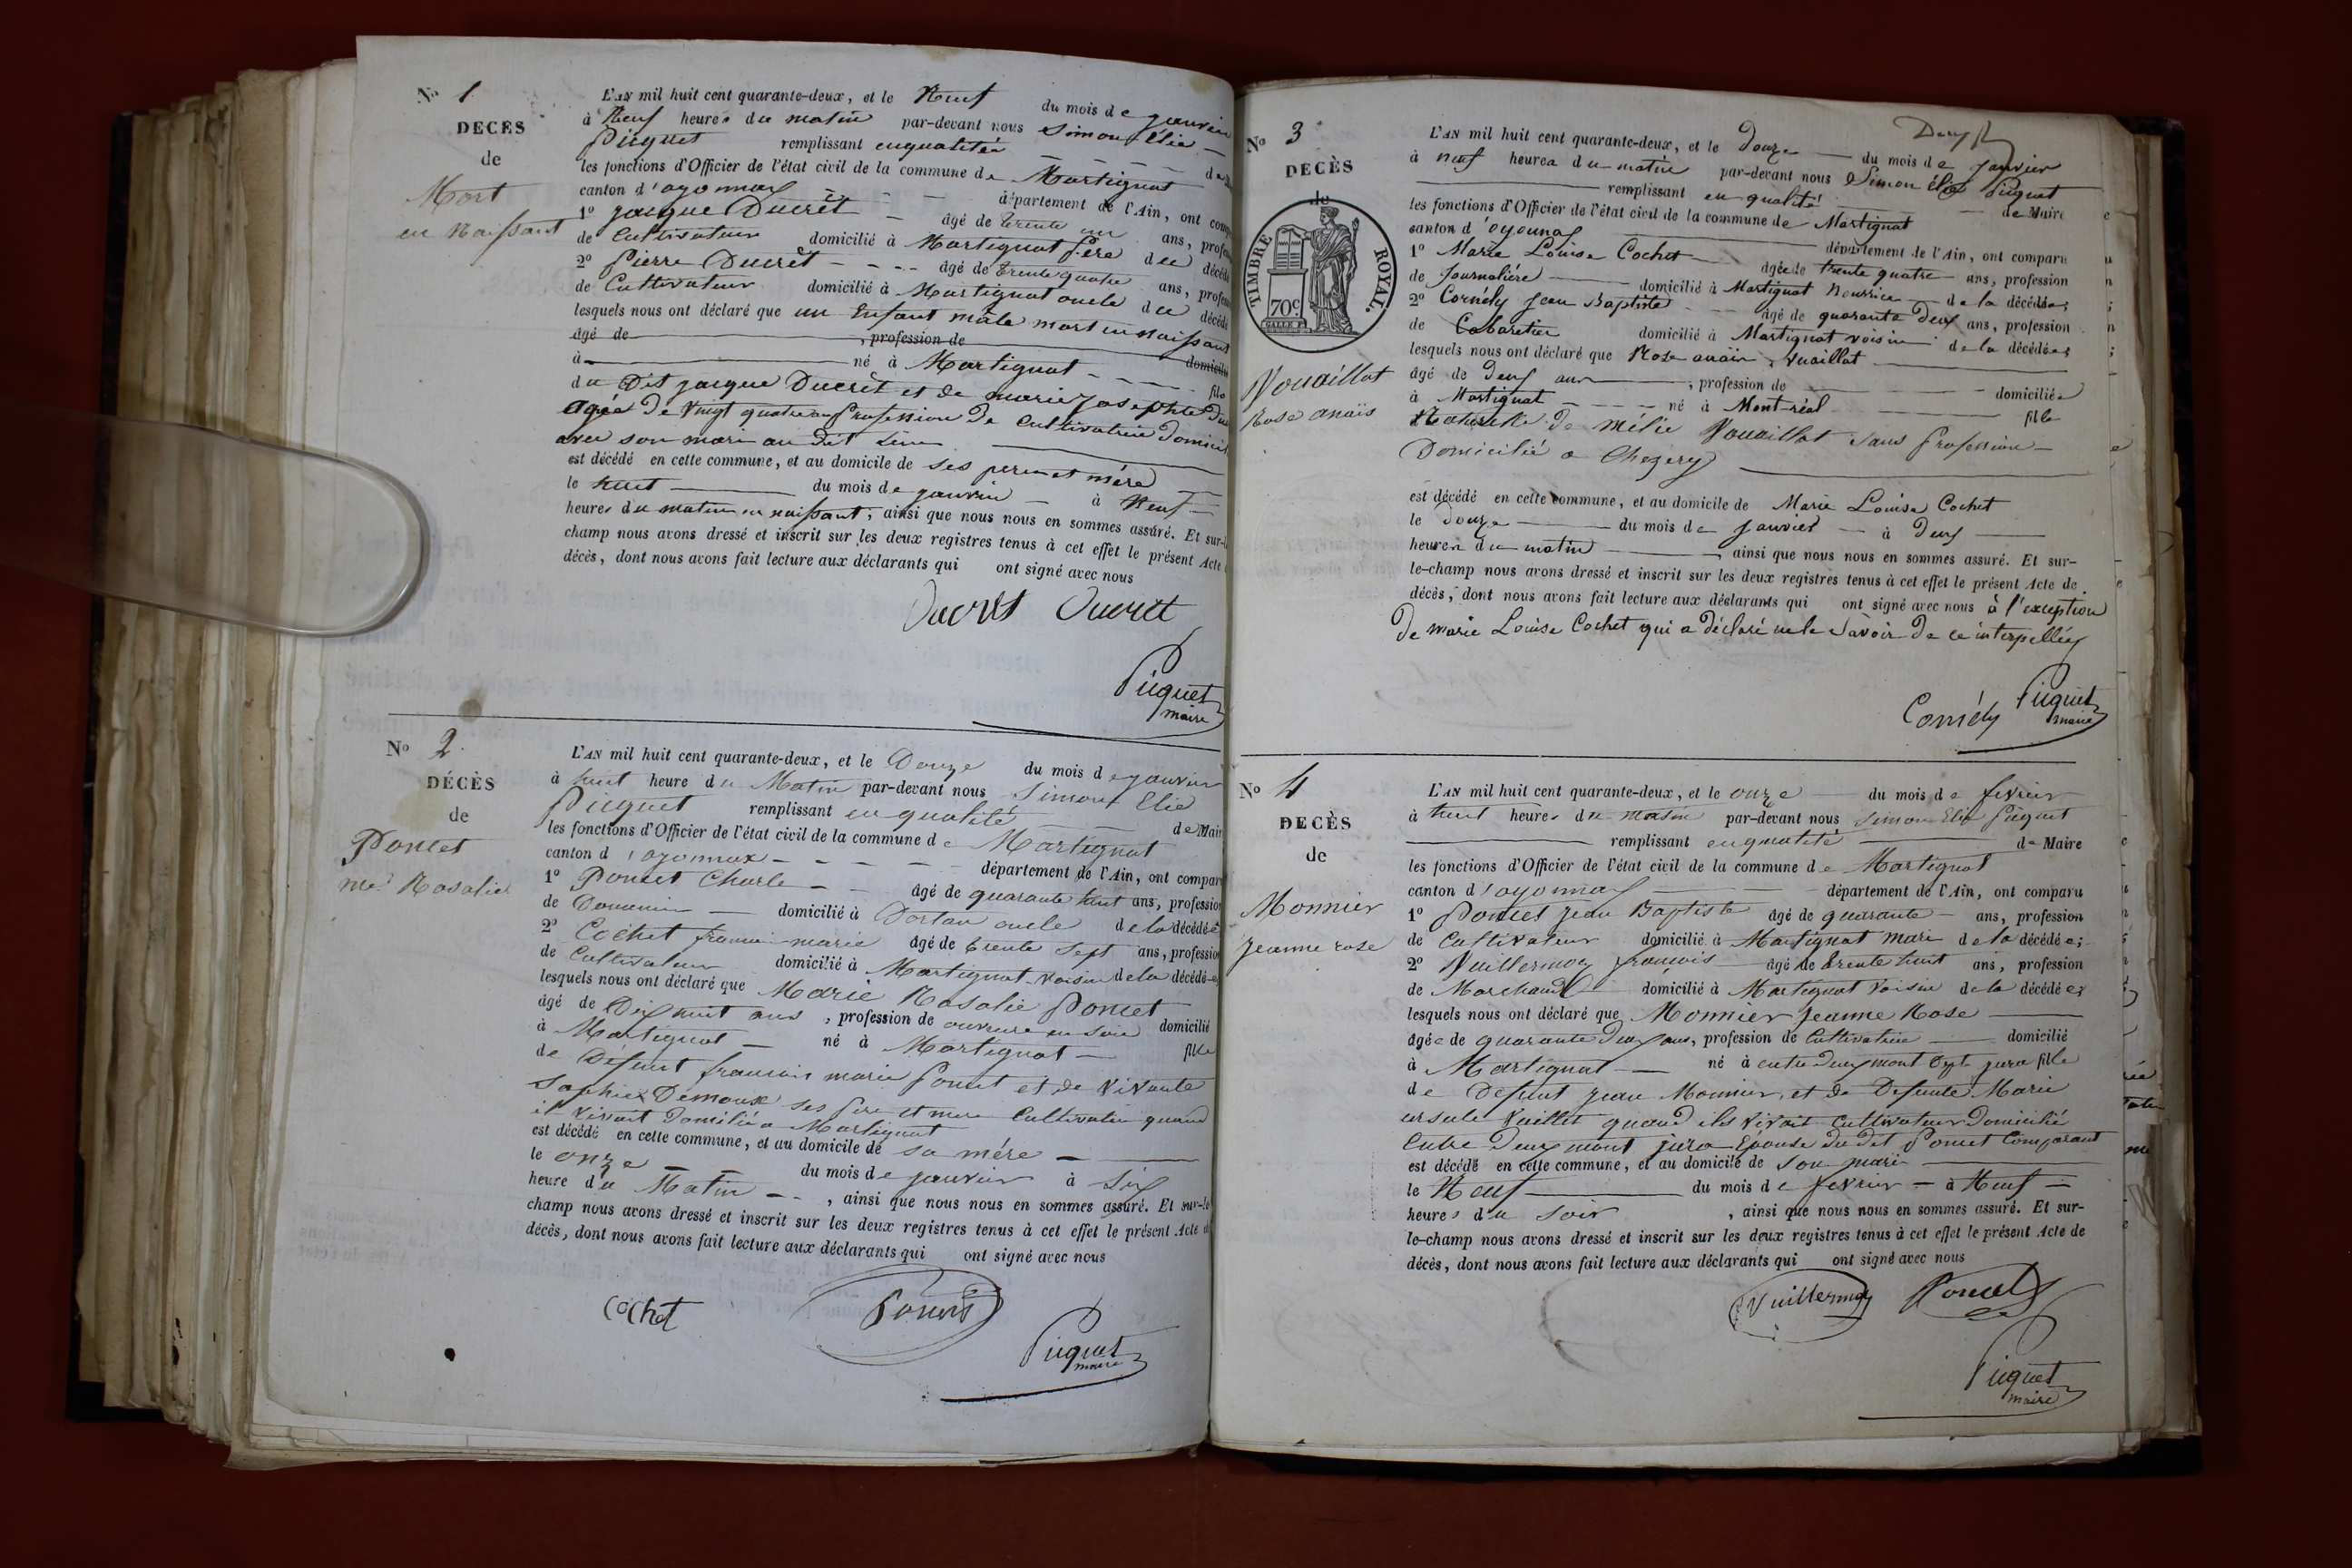 No 1
DÉCÈS
de
Mort
en Naissant
L'AN mil huit cent quarante-deux, et le Neuf du mois de janvier
à Neuf heures du matin par-devant nous Simon Elie
Piquet remplissant en qualité
les fonctions d'Officier de l'état civil de la commune de Martignat
canton d'oyonnax département de l'Ain, ont
1° Jacque Ducrèt âgé de trente ans,
de Cultivateur domicilié à Martignat Père du
2° Pierre Ducrèt âgé de trente quatre ans,
de Cultivateur domicilié à Martignat oncle du
lesquels nous ont déclaré que un Enfant mâle mort en naissant
âgé de , profession de
à né à Martignat fils
du Dit jacque Ducrèt et de marie josephte
agée de vingt quatre ans Profession de Cultivatrice
avec son mari au dit lieu
est décédé en cette commune, et au domicile de ses pere et mére
le huit du mois de janvier à Neuf
heures du matin en naissant, ainsi que nous nous en sommes assuré. Et
champ nous avons dressé et inscrit sur les deux registres tenus à cet effet le présent Acte
décès, dont nous avons fait lecture aux déclarants qui ont signé avec nous
Ducret Ducret
Piquet
maire
No 2
DÉCÈS
de
Poncet
me Rosalie
L'AN mil huit cent quarante-deux, et le Douze du mois de janvier
à huit heure du Matin par-devant nous Simon Elie
Piquet remplissant en qualité de
les fonctions d'Officier de l'état civil de la commune de Martignat
canton d'oyonnax département de l'Ain, ont
1° Poncet Charle âgé de quarante huit ans, profession
de domicilié à Dortan oncle de la décédée
2° Cochet francoi marie âgé de trente sept ans, profession
de Cultivateur domicilié à Martignat voisin de la décédée
lesquels nous ont déclaré que Marie Rosalie Poncet
âgé de Dix huit ans , profession de ouvriere en soie domicilié
à Martignat né à Martignat fille
de Défunt francois marie Poncet et de vivante
Sophie Demoux ses Pere et mere Cultivatin quand
il vivait Domicilié a Martignat
est décédé en cette commune, et au domicile de sa mére
le onze du mois de janvier à Six
heure du Matin , ainsi que nous nous en sommes assuré. Et
champ nous avons dressé et inscrit sur les deux registres tenus à cet effet le présent Acte
décès, dont nous avons fait lecture aux déclarants qui ont signé avec nous
Cochet Poncet
Piquet
maire
Deux
No 3
DÉCÈS
de
TIMBRE ROYAL.
70c.
Vouaillat
Rose anaïs
L'AN mil huit cent quarante-deux, et le Douze du mois de janvier
à neuf heures du matin par-devant nous Simon élie Piquet
remplissant en qualité de Maire
les fonctions d'Officier de l'état civil de la commune de Martignat
canton d'oyonnax département de l'Ain, ont comparu
1° Marie Louise Cochet âgée de trente quatre ans, profession
de Journalière domicilié à Martignat Nourrice de la décédée;
2° Cornély Jean Baptiste âgé de quarante Deux ans, profession
de Cabaretier domicilié à Martignat voisin de la décédée;
lesquels nous ont déclaré que Rose anaïs Vuaillat
âgé de Deux ans , profession de domiciliée
à Martignat né à Mont-réal fille
Naturelle de Mélie Vouaillat sans Profession
Domicilié a Chezery
est décédé en cette commune, et au domicile de Marie Louise Cochet
le Douze du mois de Janvier à Deux
heures du matin ainsi que nous nous en sommes assuré. Et sur-
le-champ nous avons dressé et inscrit sur les deux registres tenus à cet effet le présent Acte de
décès, dont nous avons fait lecture aux déclarants qui ont signé avec nous à l'exception
De marie Louise Cochet qui a déclaré ne le savoir De ce interpellée
Cornély Piquet
maire
No 4
DÉCÈS
de
Monnier
Jeanne rose
L'AN mil huit cent quarante-deux, et le onze du mois de fevrier
à huit heures du matin par-devant nous Simon Elie Piquet
remplissant en qualité de Maire
les fonctions d'Officier de l'état civil de la commune de Martignat
canton d'oyonnax département de l'Ain, ont comparu
1° Poncet Jean Baptiste âgé de quarante ans, profession
de Cultivateur domicilié à Martignat mari de la décédée;
2° Vuillermoz francois âgé de trente huit ans, profession
de Marchand domicilié à Martignat voisin de la décédée;
lesquels nous ont déclaré que Monnier Jeanne Rose
âgée de quarante Deux ans, profession de Cultivatrice domicilié
à Martignat né à entre Deux mont Dpt jura fille
de Defunt Jean Monnier, et de Defunte Marie
ursule Vuillet quand ils vivait Cultivateur Domicilié
Entre Deux mont jura Epouse du dit Poncet Comparant
est décédé en cette commune, et au domicile de son mari
le Neuf du mois de fevrier à Neuf
heures du soir , ainsi que nous nous en sommes assuré. Et sur-
le-champ nous avons dressé et inscrit sur les deux registres tenus à cet effet le présent Acte de
décès, dont nous avons fait lecture aux déclarants qui ont signé avec nous
Vuillermoz Poncet
Piquet
maire